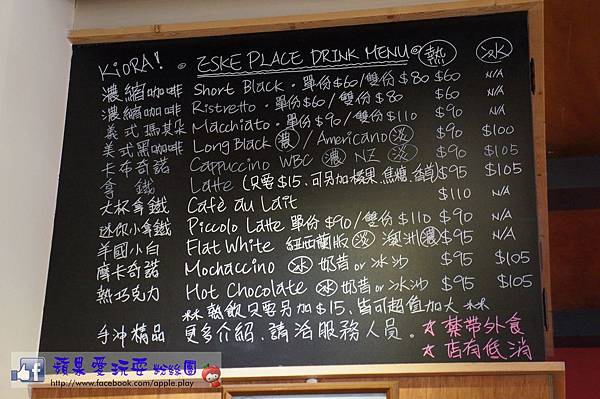 KIORA! @ ZSKE PLACE DRINK MENU@ 熱 冰
濃縮咖啡 Short Black · 單份$60/雙份$80 $60 N/A
濃縮咖啡 Ristretto · 單份$60/雙份$80 $60 N/A
義式瑪其朵 Macchiato · 單份$90/雙份$110 $90 N/A
美式黑咖啡 Long Black 濃 / Americano 淡 $90 $100
卡布奇諾 Cappuccino WBC 濃 NZ 淡 $90 $105
拿鐵 Latte (只要$15.可另加榛果.焦糖.香草) $95 $105
大杯拿鐵 Café au Lait $110 N/A
迷你小拿鐵 Piccolo Latte 單份$90/雙份$110 $90 N/A
羊國小白 Flat White 紐西蘭版 淡 澳洲 濃 $95 N/A
摩卡奇諾 Mochaccino 冰 奶昔 or 冰沙 $95 $105
熱巧克力 Hot Chocolate 冰 奶昔 or 冰沙 $95 $105
熱飲只要另加$15.皆可超值加大
手沖精品 更多介紹.請洽服務人員。 ☆禁帶外食
☆店有低消
蘋果愛玩耍 粉絲團
http://www.facebook.com/apple.play